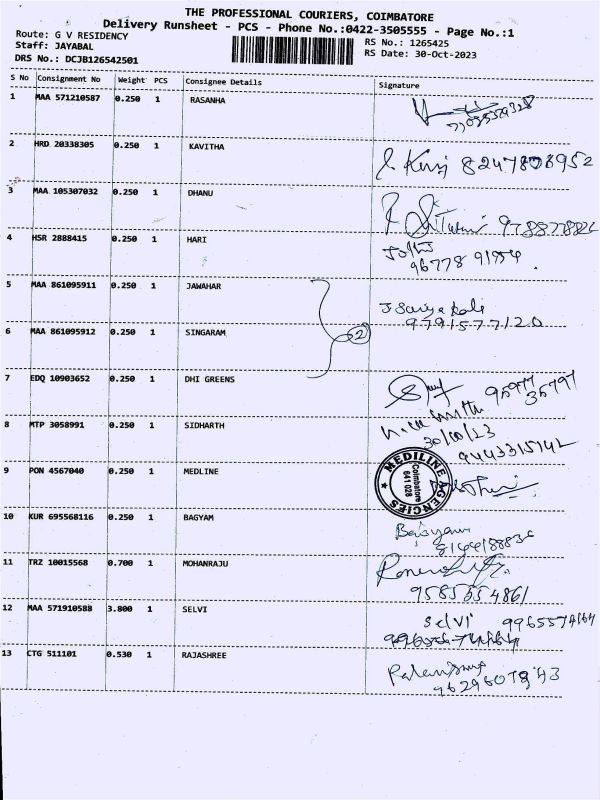 THE PROFESSIONAL COURIERS, COIMBATORE
Delivery Runsheet - PCS - Phone No.:0422-3505555 - Page No.:1
Route: G V RESIDENCY
Staff: JAYABAL
DRS No.: DCJB126542501
RS No.: 1265425
RS Date: 30-Oct-2023
S No Consignment No Weight PCS Consignee Details Signature
1 MAA 571210587 0.250 1 RASANHA
2 HRD 20338305 0.250 1 KAVITHA 8247808952
3 MAA 105307032 0.250 1 DHANU
4 HSR 2888415 0.250 1 HARI Jothi
96778 91954
5 MAA 861095911 0.250 1 JAWAHAR
9791577120
6 MAA 861095912 0.250 1 SINGARAM 2
7 EDQ 10903652 0.250 1 DHI GREENS
8 MTP 3058991 0.250 1 SIDHARTH
30/10/23
9443315142
9 PON 4567040 0.250 1 MEDLINE
MEDILINE AGENCIES
Coimbatore
641 028
10 KUR 695568116 0.250 1 BAGYAM
11 TRZ 10015568 0.700 1 MOHANRAJU
9585554861
12 MAA 571910588 3.800 1 SELVI Selvi 9965574164
13 CTG 511101 0.530 1 RAJASHREE
9629607843